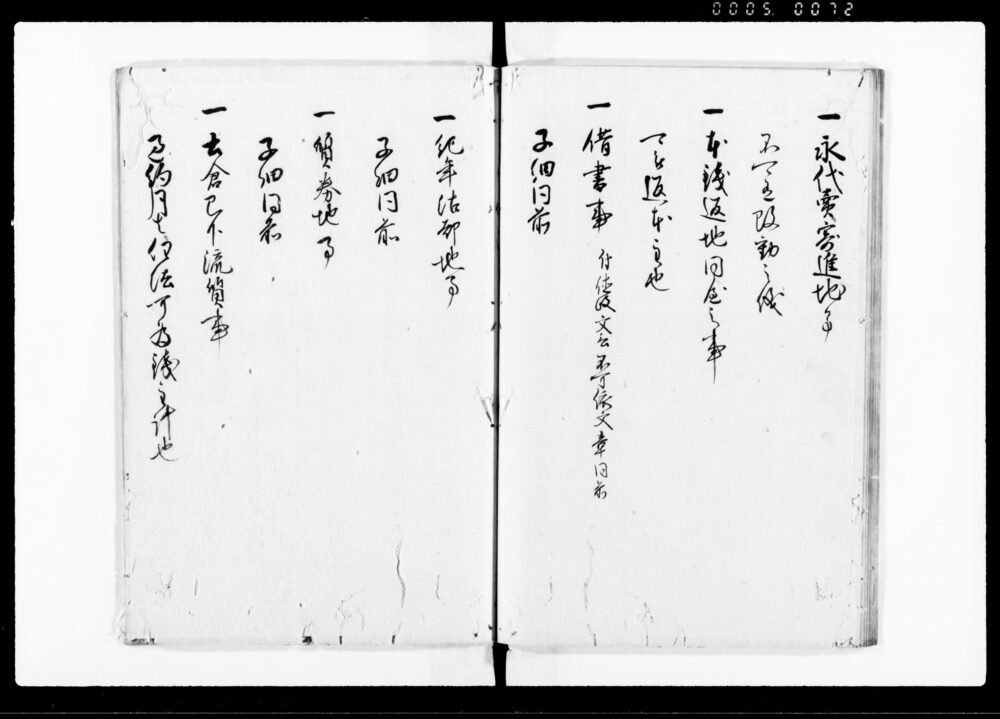 0005. 0072
一 永代売寄進地事
不可有改動之儀
一 本銭返地同屋之事
可被返本主也
一 借書事 付 徳政文言 不可依文章同前
子細同前
一 紀年沽却地事
子細同前
一 質券地事
子細同前
一 土倉已下流質事
過約月者任法可為銭主計也